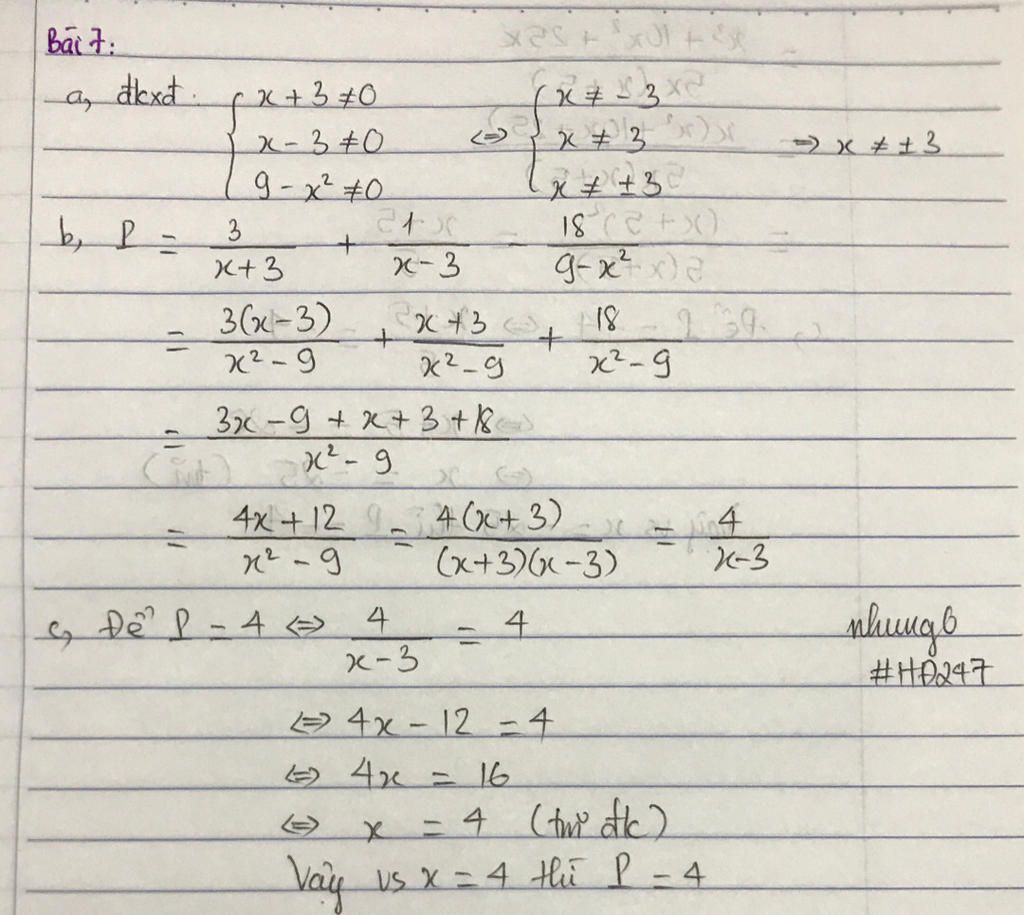 Bài 7:
a, đkxđ: { x + 3 ≠ 0 ; x - 3 ≠ 0 ; 9 - x² ≠ 0 <=> { x ≠ -3 ; x ≠ 3 ; x ≠ ±3 => x ≠ ±3
b, P = 3/(x+3) + 1/(x-3) - 18/(9-x²)
= 3(x-3)/(x²-9) + (x+3)/(x²-9) + 18/(x²-9)
= (3x - 9 + x + 3 + 18)/(x² - 9)
= (4x+12)/(x²-9) = 4(x+3)/((x+3)(x-3)) = 4/(x-3)
c, Để P = 4 <=> 4/(x-3) = 4
nhung6
#HĐ247
<=> 4x - 12 = 4
<=> 4x = 16
<=> x = 4 (tm đk)
Vậy vs x = 4 thì P = 4